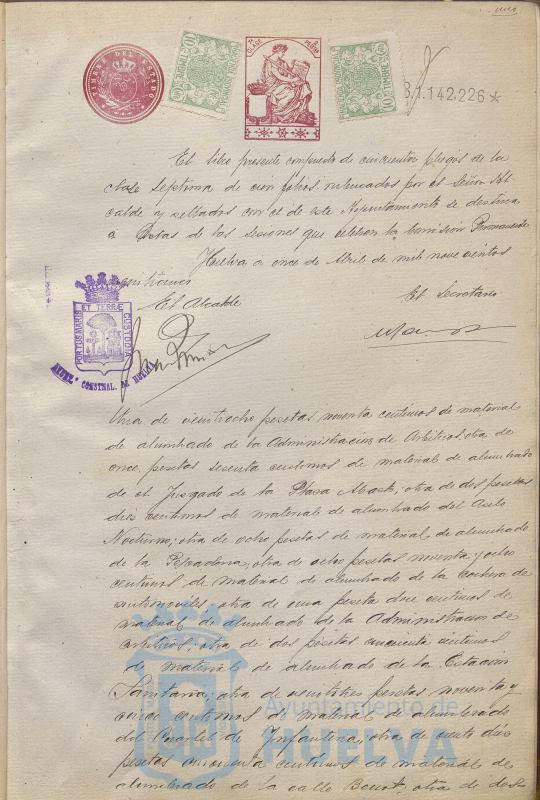 uno
TIMBRE DEL ESTADO
1ª CLASE
10 TIMBRE 10
B.1.142.226 *
El libro presente compuesto de cincuenta pliegos de la
clase septima de cien folios rubricados por el Señor Al-
calde y sellados con el de este Ayuntamiento se destina
a Actas de las sesiones que celebren la Comision Permanente
Huelva a once de Abril de mil novecientos
El Alcalde
El Secretario
PORTUS MARIS ET TERRÆ CUSTODIA
CONSTNAL. DE HUELVA
Otra de veintiocho pesetas noventa centimos de material
de alumbrado de la Administracion de Arbitrios, otra de
once pesetas sesenta centimos de material de alumbrado
de el Juzgado de la Plaza Abasto, otra de dos pesetas
diez centimos de material de alumbrado del Asilo
Nocturno, otra de ocho pesetas de material de alumbrado
de la Pescaderia, otra de ocho pesetas noventa y ocho
centimos de material de alumbrado de la cochera de
automoviles, otra de una peseta doce centimos de
material de alumbrado de la Administracion de
arbitrios, otra de dos pesetas cincuenta centimos
de material de alumbrado de la Estacion
Sanitaria, otra de veintitres pesetas noventa y
centimos de material de alumbrado
del Cuartel de Infanteria, otra de ciento diez
pesetas cincuenta centimos de material de
alumbrado de la calle otra de dos
Ayuntamiento de
HUELVA